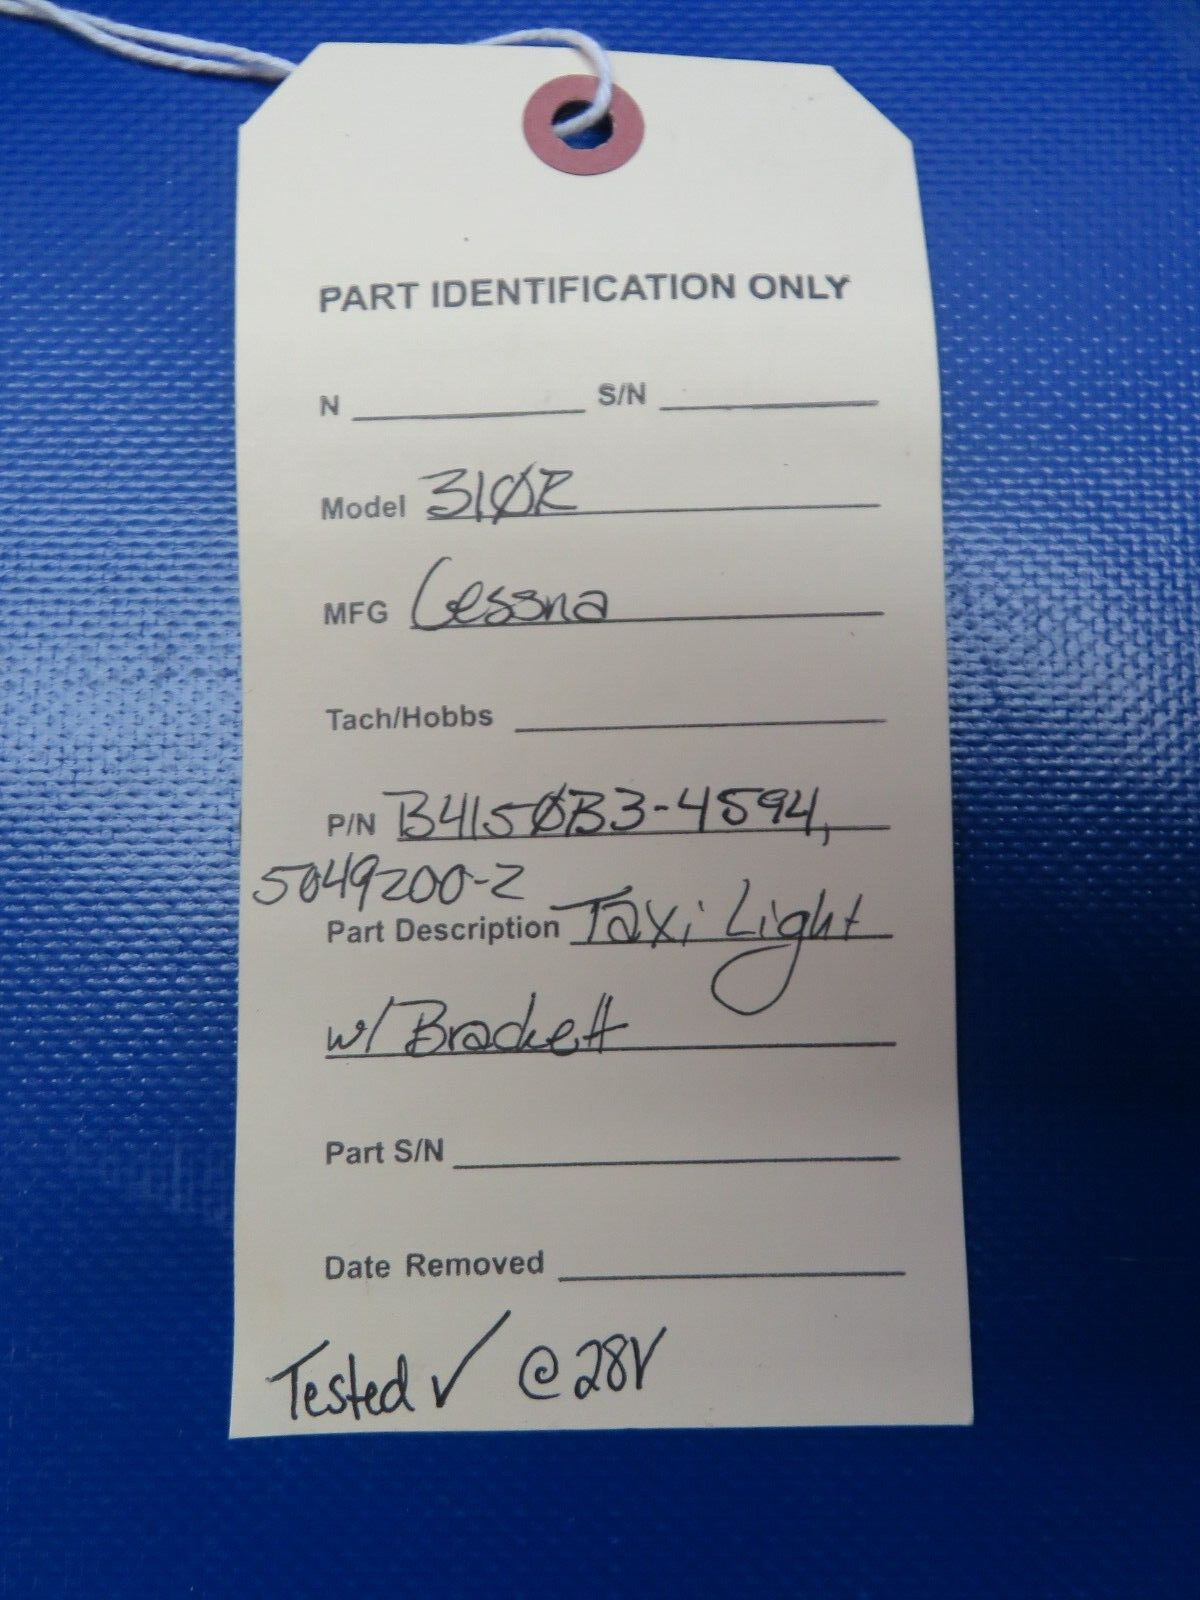 PART IDENTIFICATION ONLY
N S/N
Model 310R
MFG Cessna
Tach/Hobbs
P/N B4150B3-4594,
5049200-2
Part Description Taxi Light
w/ Brackett
Part S/N
Date Removed
Tested ✓ @ 28V